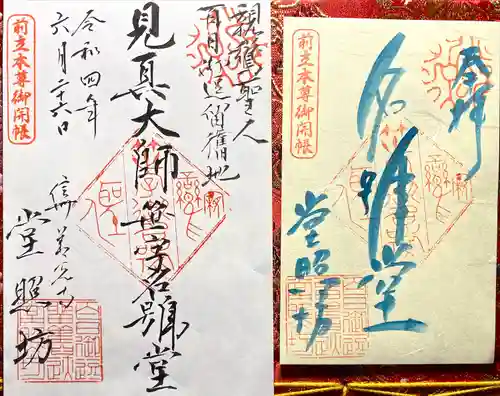 親鸞聖人
百日御逗留舊地
見真大師笹字名號堂
令和四年
六月二十六日
前立本尊御開帳
善光寺
堂照坊
奉拝
名號堂
堂照坊
前立本尊御開帳